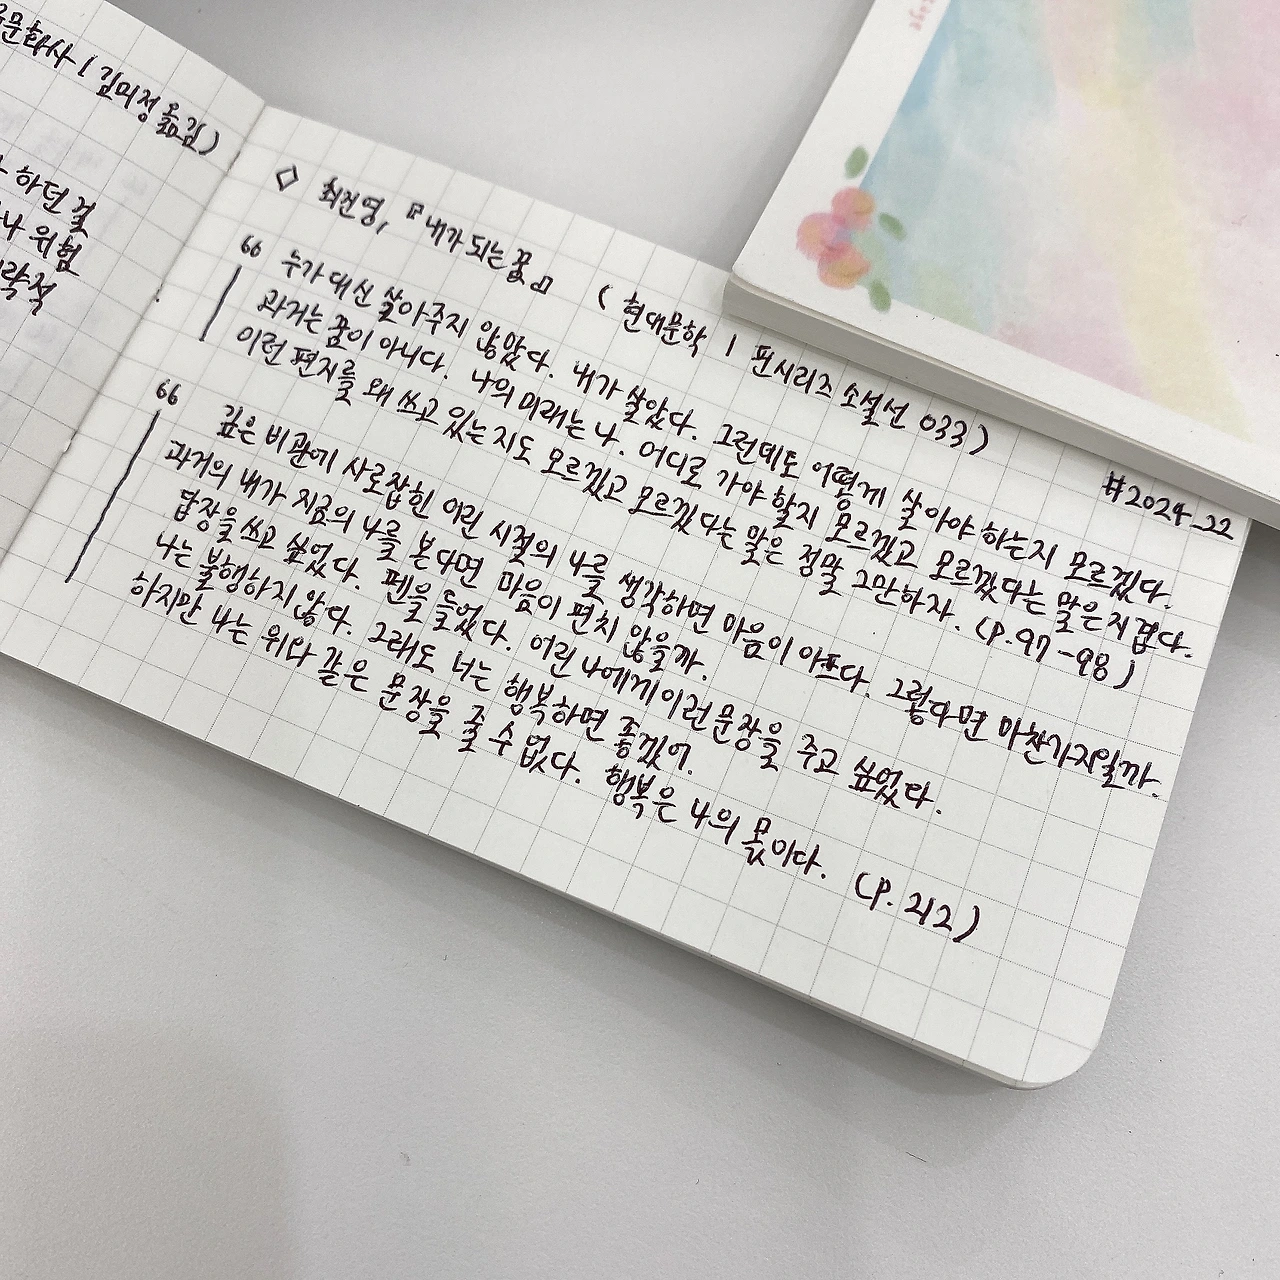 문화사 / 김미정 옮김)
하던 걸
나 위험
략적
◇ 최진영, 『내가 되는 꿈』 (현대문학 | 핀시리즈 소설선 033)
#2024_22
“ 누가 대신 살아주지 않았다. 내가 살았다. 그런데도 어떻게 살아야 하는지 모르겠다.
과거는 꿈이 아니다. 나의 미래는 나. 어디로 가야 할지 모르겠고 모르겠다는 말은 지겹다.
이런 편지를 왜 쓰고 있는지도 모르겠고 모르겠다는 말은 정말 그만하자. (P.97-98)
“ 깊은 비관에 사로잡힌 어린 시절의 나를 생각하면 마음이 아프다. 그렇다면 마찬가지일까.
과거의 내가 지금의 나를 본다면 마음이 편치 않을까.
답장을 쓰고 싶었다. 펜을 들었다. 어린 나에게 이런 문장을 주고 싶었다.
나는 불행하지 않다. 그래도 너는 행복하면 좋겠어.
하지만 나는 위와 같은 문장을 줄 수 없다. 행복은 나의 몫이다. (P. 212)